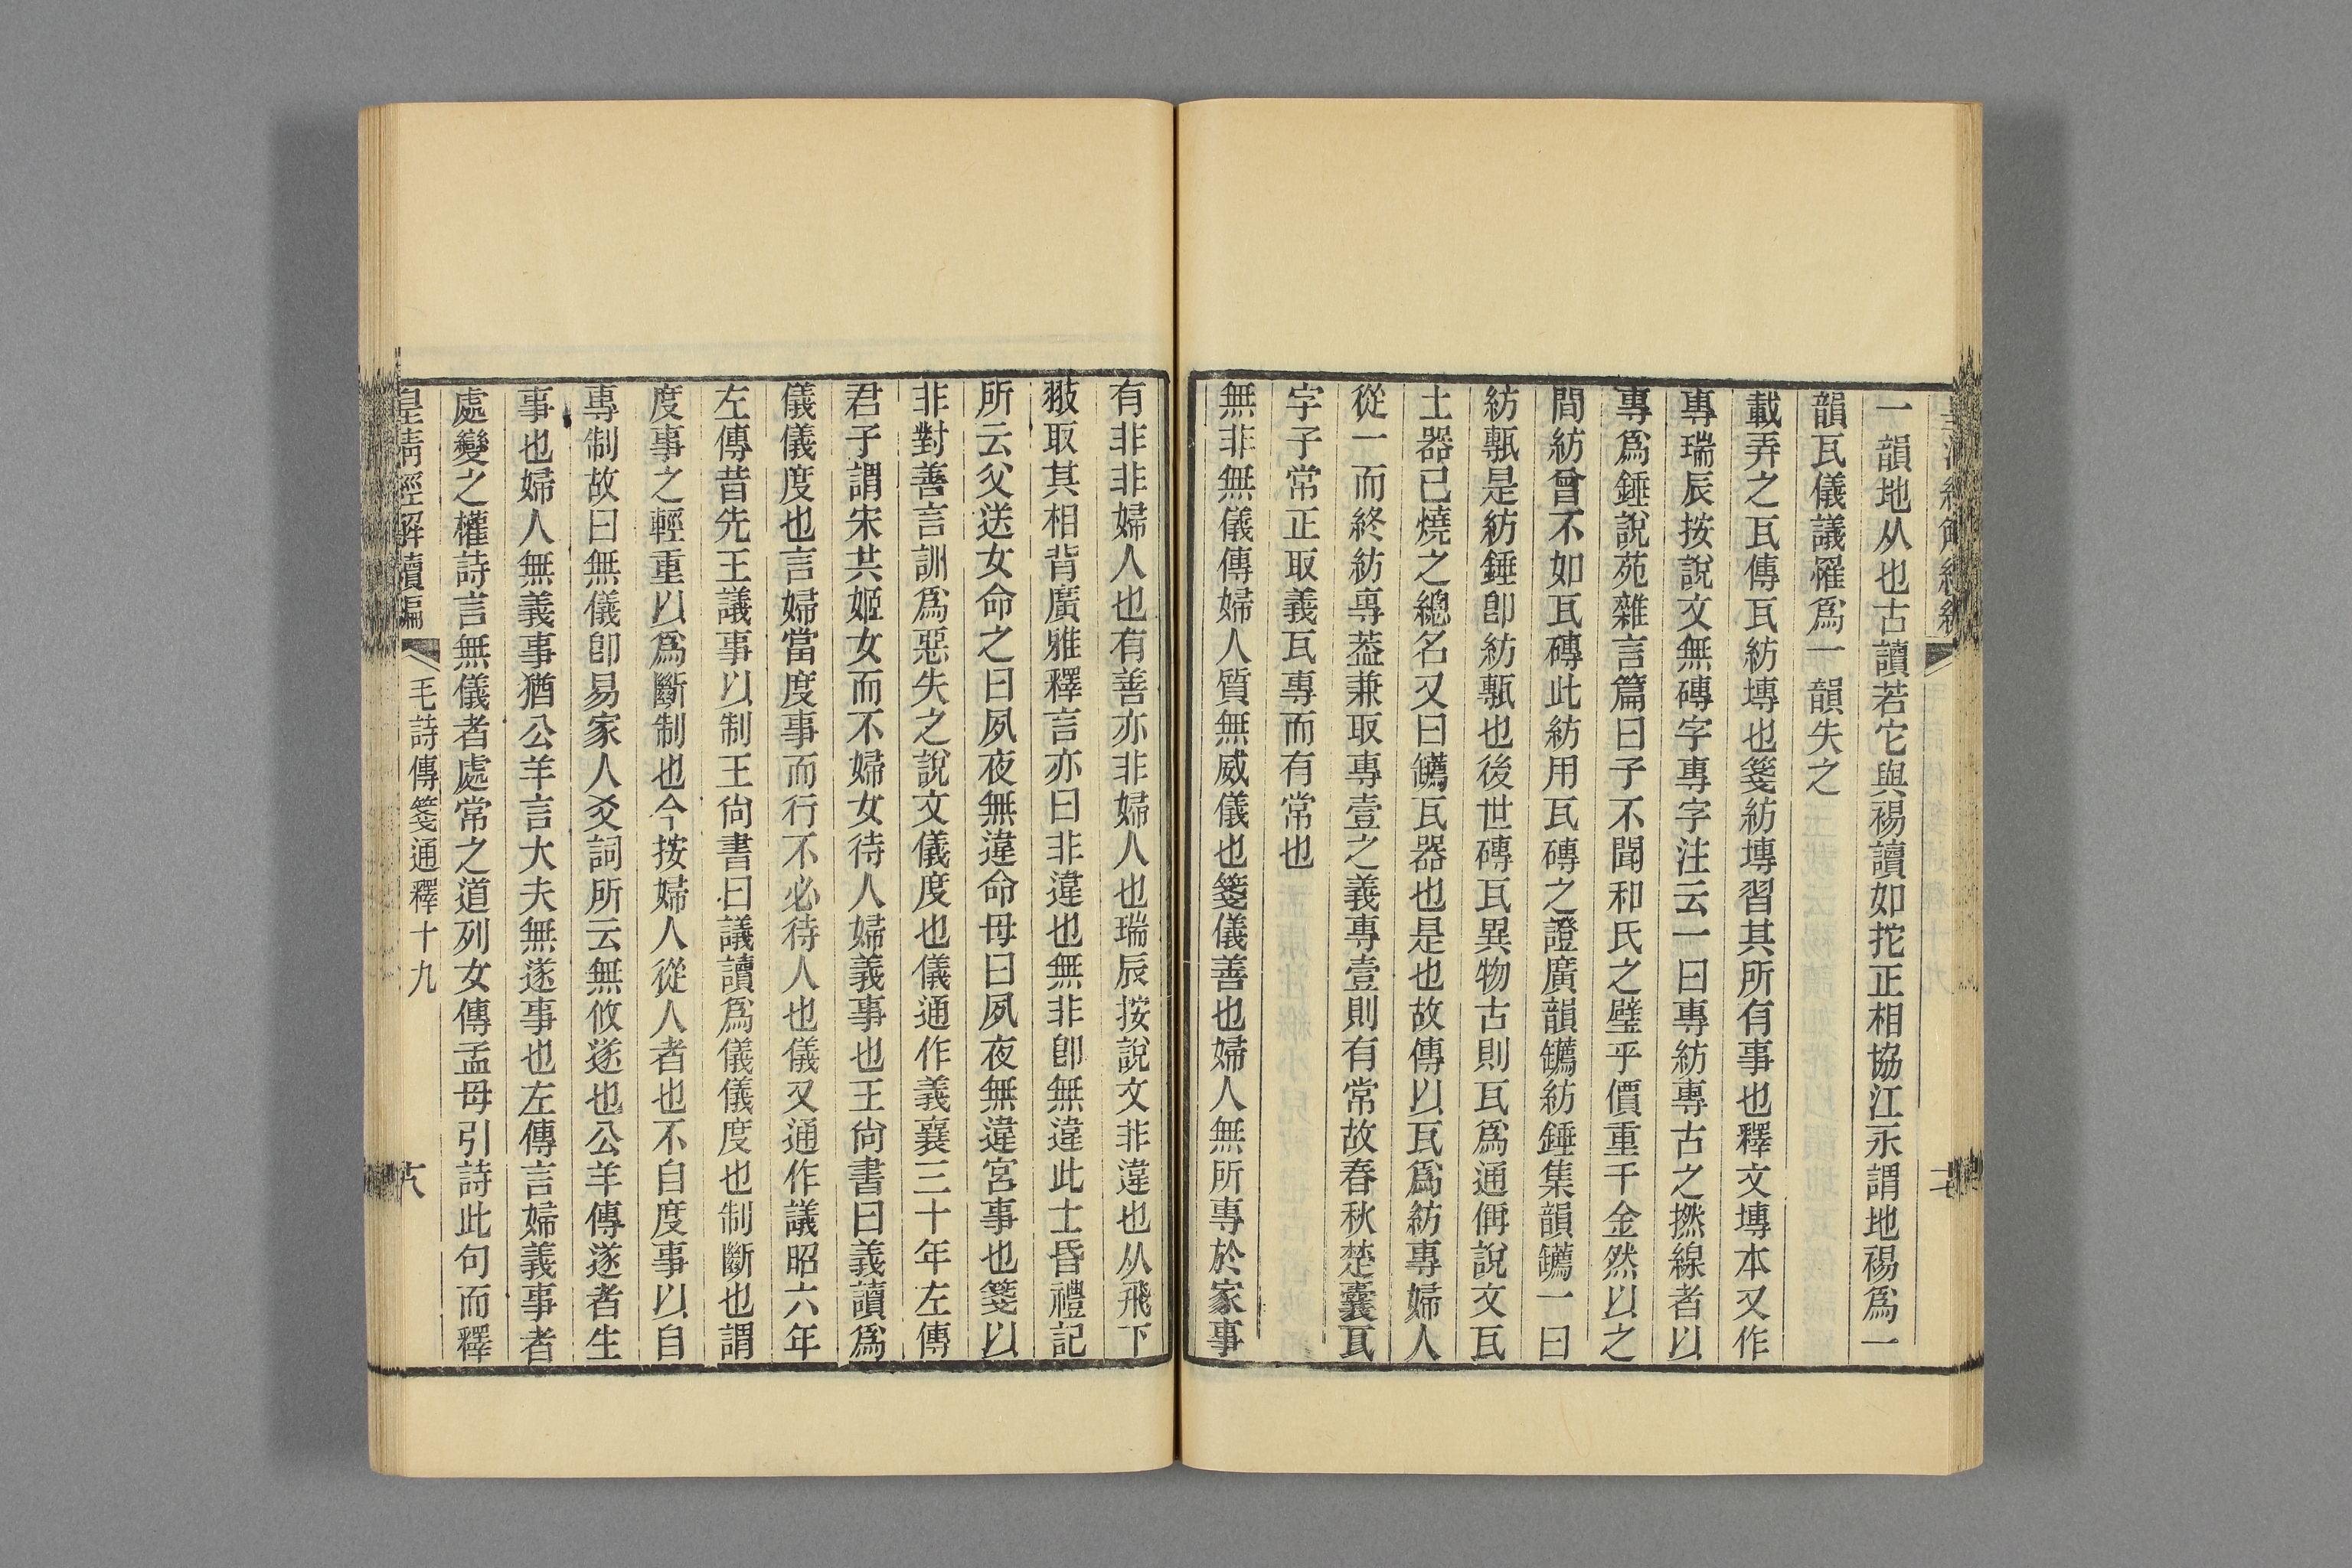 一韻地从也古讀若它與裼讀如拕正相協江永謂地裼爲一
韻瓦儀議罹爲一韻失之
載弄之瓦傳瓦紡塼也箋紡塼習其所有事也釋文塼本又作
專瑞辰按說文無磚字專字注云一曰專紡專古之撚線者以
專爲錘說苑雜言篇曰子不聞和氏之璧乎價重千金然以之
間紡曾不如瓦磚此紡用瓦磚之證廣韻䥯紡錘集韻䥯一曰
紡甎是紡錘卽紡甎也後世磚瓦異物古則瓦爲通偁說文瓦
土器已燒之總名又曰䥯瓦器也是也故傳以瓦爲紡專婦人
從一而終紡專葢兼取專壹之義專壹則有常故春秋楚囊瓦
字子常正取義瓦專而有常也
無非無儀傳婦人質無威儀也箋儀善也婦人無所專於家事
有非非婦人也有善亦非婦人也瑞辰按說文非違也从飛下
翄取其相背廣雅釋言亦曰非違也無非卽無違此士昏禮記
所云父送女命之曰夙夜無違命母曰夙夜無違宮事也箋以
非對善言訓爲惡失之說文儀度也儀通作義襄三十年左傳
君子謂宋共姬女而不婦女待人婦義事也王尙書曰義讀爲
儀儀度也言婦當度事而行不必待人也儀又通作議昭六年
左傳昔先王議事以制王尙書曰議讀爲儀儀度也制斷也謂
度事之輕重以爲斷制也今按婦人從人者也不自度事以自
專制故曰無儀卽易家人爻詞所云無攸遂也公羊傳遂者生
事也婦人無義事猶公羊言大夫無遂事也左傳言婦義事者
處變之權詩言無儀者處常之道列女傳孟母引詩此句而釋
皇淸經解續編
毛詩傳箋通釋十九